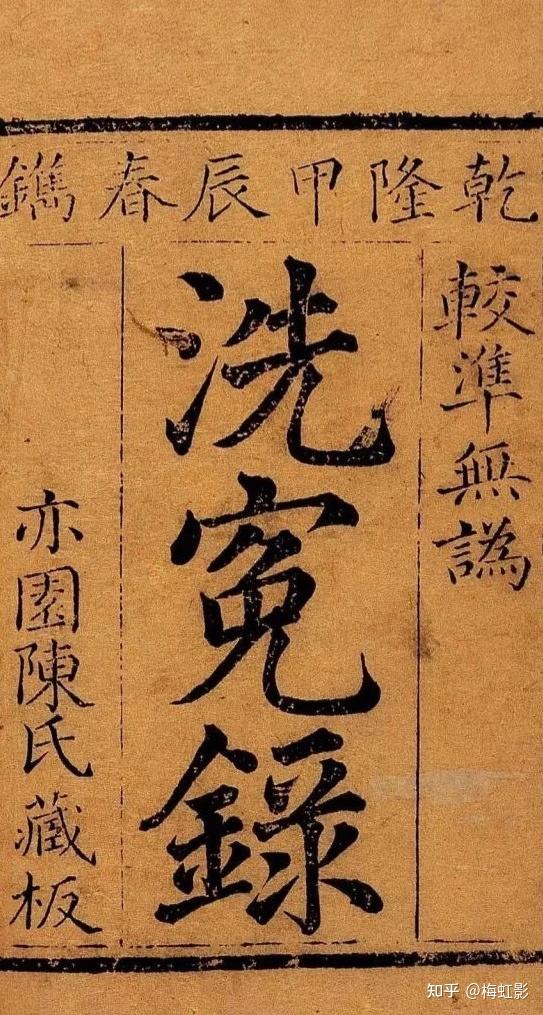 乾隆甲辰春鐫
較準無譌
洗冤錄
亦園陳氏藏板
知乎 @梅虹影